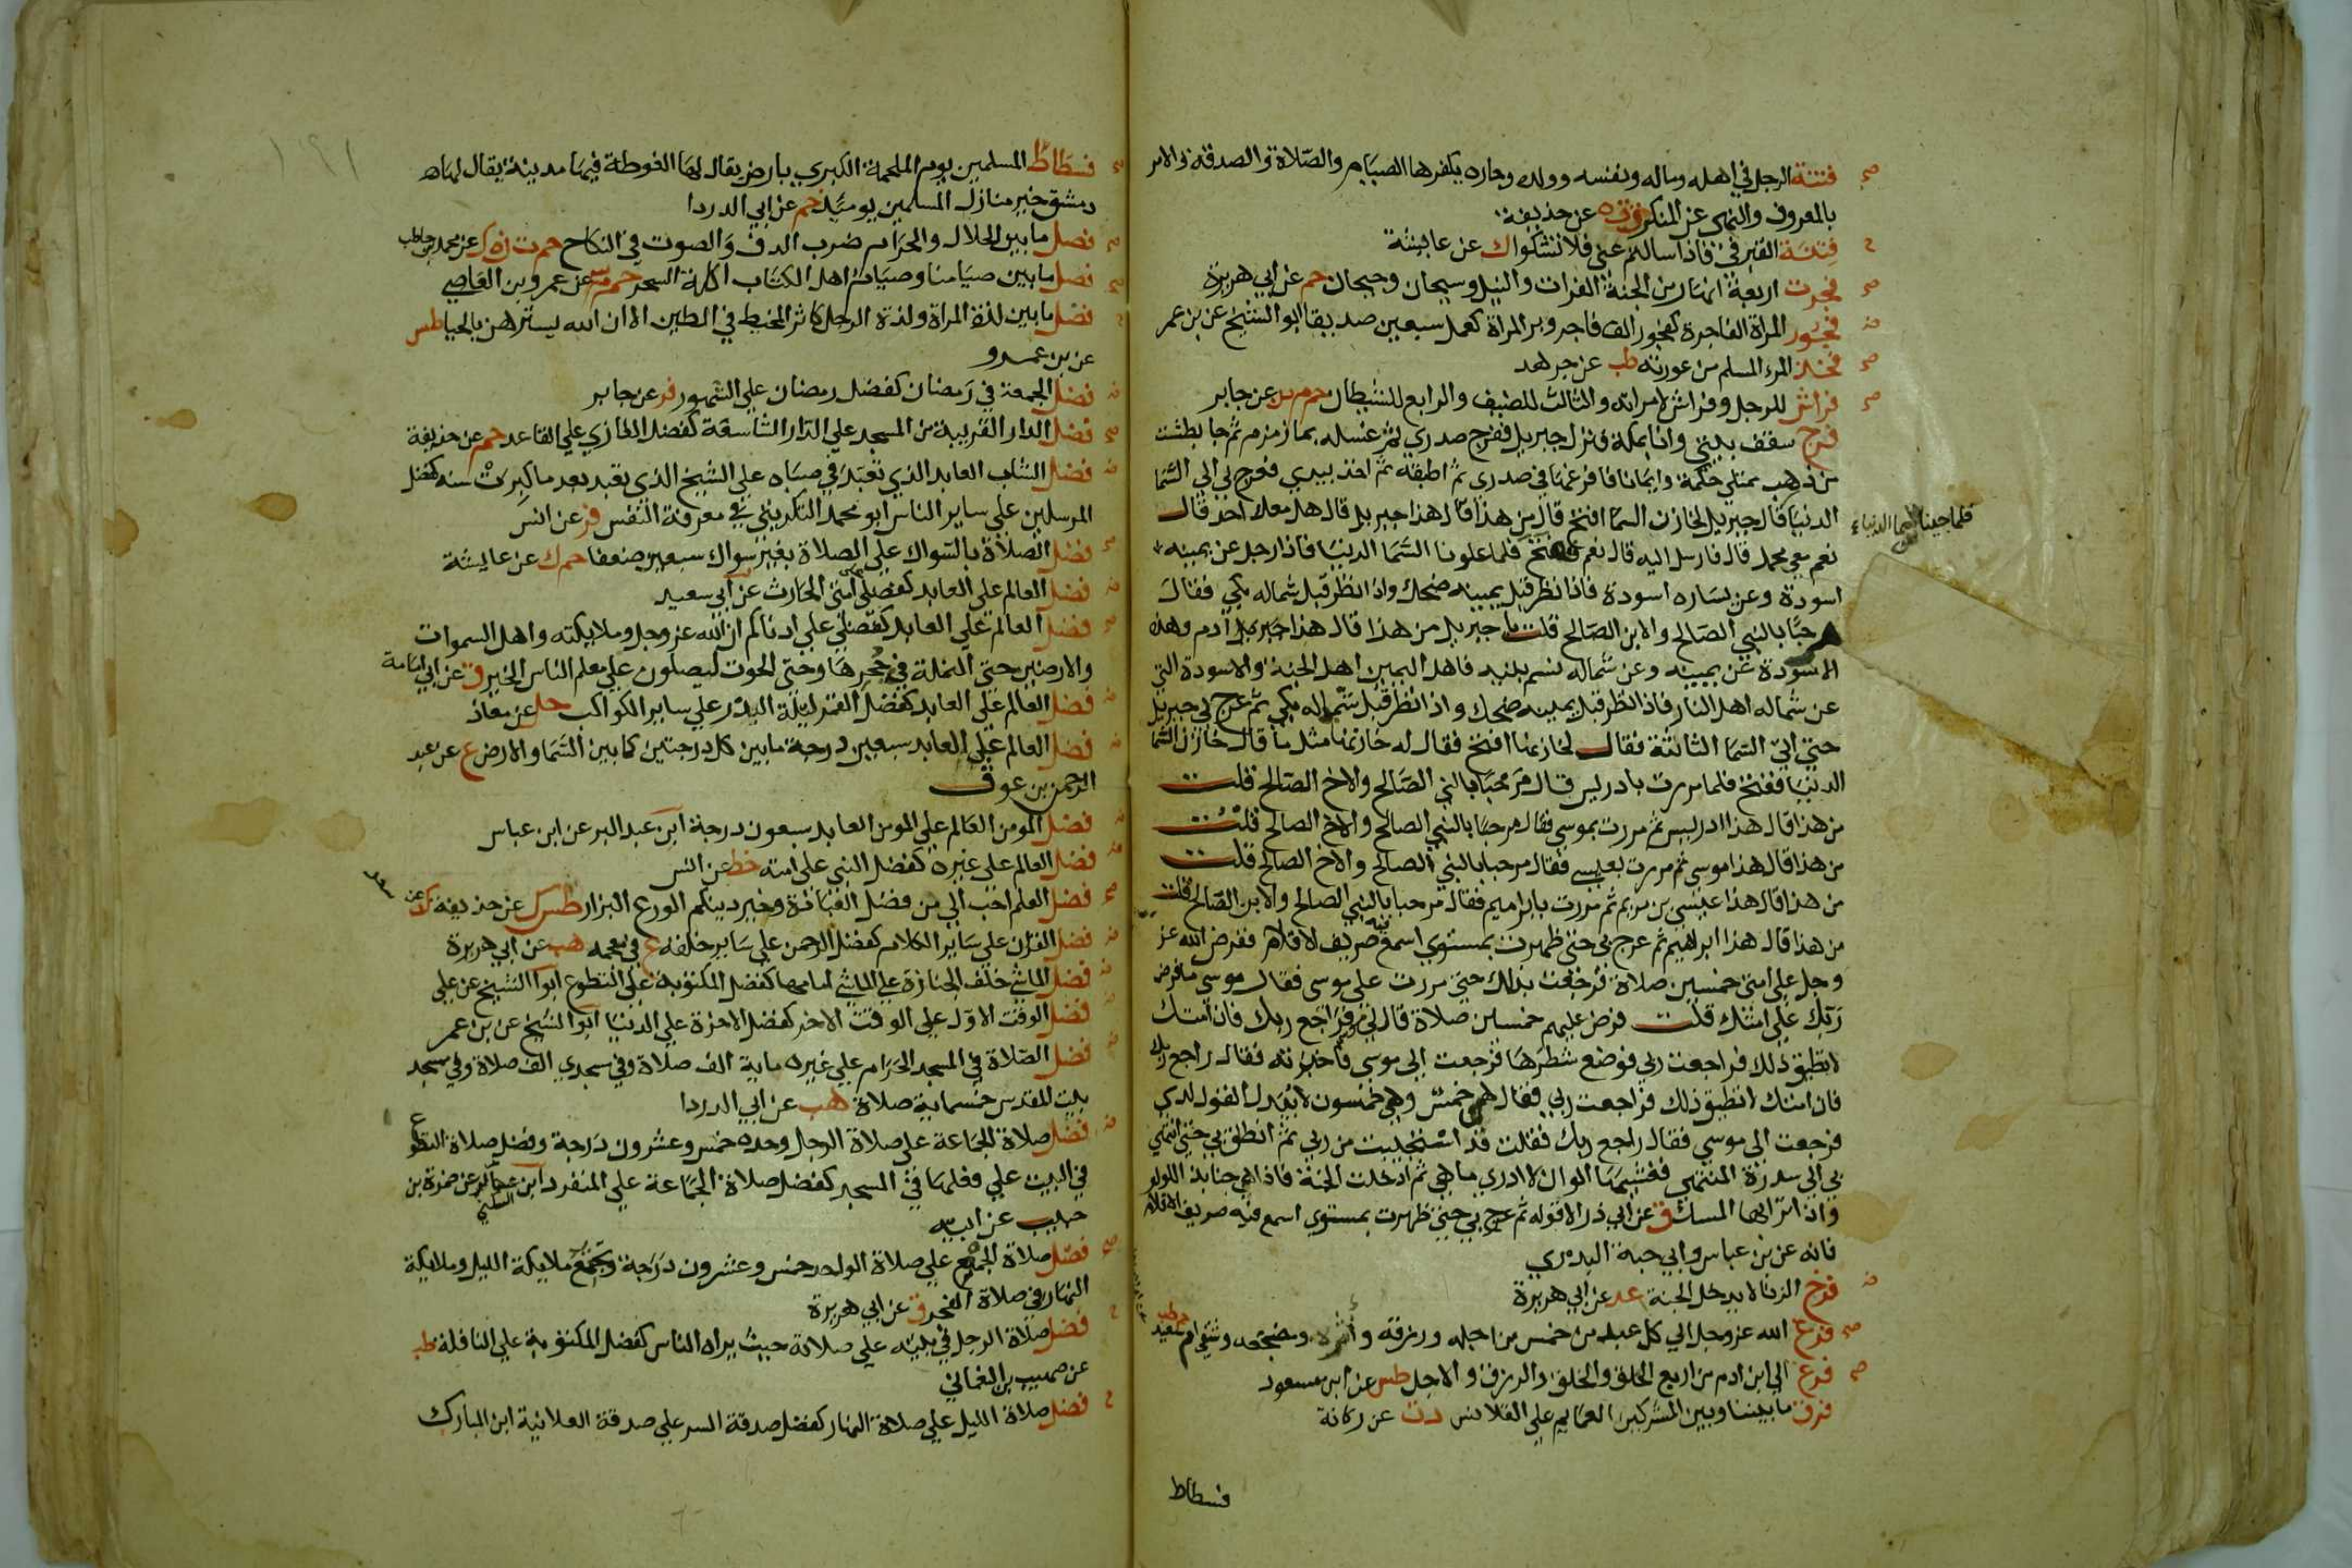 صح فتنة الرجل في اهله وماله ونفسه وولده وجاره يكفرها الصيام والصلاة والصدقة والامر
بالمعروف والنهى عن المنكر ق ت ه عن حذيفة
ح فتنة القبر في فاذا سالتم عني فلا تشكوا ك عن عايشة
صح فجرت اربعة انهار من الجنة الفرات والنيل وسيحان وجيحان حم عن ابي هريرة
ض فجور المراة الفاجرة كفجور الف فاجر وبر المراة كعمل سبعين صديقا ابو الشيخ عن بن عمر
صح فخذ المرء المسلم من عورته طب عن جرهد
صح فراش للرجل وفراش لامراته والثالث للضيف والرابع للشيطان حم م د ن عن جابر
فرج سقف بيتي وانا بمكة فنزل جبريل ففرج صدري ثم غسله بما زمزم ثم جا بطشت
من ذهب ممتلي حكمة وايمانا فافرغها في صدري ثم اطبقه ثم اخذ بيدي فعرج بي الى السما
فلما جينا السما الدنيا
الدنيا قال جبريل لخازن السما افتح قال من هذا قال هذا جبريل قال هل معك احد قال
نعم معي محمد قال فارسل اليه قال نعم ففتح فلما علونا السما الدنيا فاذا رجل عن يمينه
اسودة وعن يساره اسودة فاذا نظر قبل يمينه ضحك واذا نظر قبل شماله بكي فقال
مرحبًا بالنبي الصالح والابن الصالح قلت يا جبريل من هذا قال هذا ادم وهذه
الاسودة عن يمينه وعن شماله نسم بنيه فاهل اليمين اهل الجنة والاسودة التي
عن شماله اهل النار فاذا نظر قبل يمينه ضحك واذا نظر قبل شماله بكي ثم عرج بي جبريل
حتي اتي السما الثانية فقال لخازنها افتح فقال له خازنها مثل ما قال خازن السما
الدنيا ففتح فلما مررت بادريس قال مرحبًا بالنبي الصالح والاخ الصالح فقلت
من هذا قال هذا ادريس ثم مررت بموسي فقال مرحبا بالنبي الصالح والاخ الصالح قلت
من هذا قال هذا موسي ثم مررت بعيسي فقال مرحبا بالنبي الصالح والاخ الصالح قلت
من هذا قال هذا عيسى بن مريم ثم مررت بابراهيم فقال مرحبا بالنبي الصالح والابن الصالح قلت
من هذا قال هذا ابراهيم ثم عرج بي حتى ظهرت بمستوي اسمع فيه صريف الاقلام ففرض الله عز
وجل علي امتي خمسين صلاة فرجعت بذلك حتي مررت علي موسى فقال موسي ما فرض
ربك علي امتك قلت فرض عليهم خمسين صلاة قال لي فراجع ربك فان امتك
لا تطيق ذلك فراجعت ربي فوضع شطرها فرجعت الي موسي فاخبرته فقال راجع ربك
فان امتك لا تطيق ذلك فراجعت ربي فقال هي خمس وهي خمسون لا يبدل القول لدي
فرجعت الى موسي فقال راجع ربك فقلت قد استحييت من ربي ثم انطلق بي حتي انتهي
بي الي سدرة المنتهي فغشيها الوان لا ادري ما هي ثم ادخلت الجنة فاذا فيها جنابذ اللولو
واذا ترابها المسك ق عن ابي ذر الا قوله ثم عرج بي حتي ظهرت بمستوي اسمع فيه صريف الاقلام
فانه عن بن عباس وابي حبة البدري
ض فرخ الزنا لا يدخل الجنة عد عن ابي هريرة
صح فرغ الله عز وجل الي كل عبد من خمس من اجله ورزقه واثره ومضجعه وشقي ام سعيد حم طب
صح فرغ الى ابن ادم من اربع الخلق والخلق والرزق والاجل طس عن ابن مسعود
فرق ما بيننا وبين المشركين العمايم علي القلانس د ت عن ركانة
فسطاط
١٩١
صح فسطاط المسلمين يوم الملحمة الكبري بارض يقال لها الغوطة فيها مدينة يقال لها
دمشق خير منازل المسلمين يوميذ حم عن ابي الدردا
صح فصل ما بين الحلال والحرام ضرب الدف والصوت في النكاح حم ت ن ه ك عن محمد بن حاطب
صح فصل ما بين صيامنا وصيام اهل الكتاب اكلة السحر حم م عن عمرو بن العاصي
فضل ما بين لذة المراة ولذة الرجل كاثر المخيط في الطين الا ان الله يسترهن بالحيا طس
عن بن عمرو
ض فضل الجمعة في رمضان كفضل رمضان علي الشهور فر عن جابر
صح فضل الدار القريبة من المسجد علي الدار الشاسعة كفضل الغازي علي القاعد حم عن حذيفة
ض فضل الشاب العابد الذي تعبد في صباه علي الشيخ الذي تعبد بعد ما كبرت سنه كفضل
المرسلين علي ساير الناس ابو محمد التكريتي في معرفة النفس فر عن انس
صح فضل الصلاة بالسواك علي الصلاة بغير سواك سبعين ضعفا حم ك عن عايشة
ض فضل العالم علي العابد كفضلي علي امتي الحارث عن ابي سعيد
صح فضل العالم علي العابد كفضلي علي ادناكم ان الله عز وجل وملايكته واهل السموات
والارضين حتي النملة في جحرها وحتي الحوت ليصلون علي معلم الناس الخير ت عن ابي امامة
ض فضل العالم علي العابد كفضل القمر ليلة البدر علي ساير الكواكب حل عن معاذ
ض فضل العالم علي العابد سبعين درجة ما بين كل درجتين كما بين السما والارض ع عن عبد
الرحمن بن عوف
ض فضل المومن العالم علي المومن العابد سبعون درجة ابن عبد البر عن ابن عباس
ض فضل العالم على غيره كفضل النبي على امته خط عن انس
صح فضل العلم احب الي من فضل العبادة وخير دينكم الورع البزار طس ك عن حذيفة ك عن سعد
ض فضل القران علي ساير الكلام كفضل الرحمن علي ساير خلقه ع في معجمه هب عن ابي هريرة
ض فضل الماشي خلف الجنازة علي الماشي امامها كفضل المكتوبة علي التطوع ابو الشيخ عن علي
ض فضل الوقت الاول علي الوقت الاخر كفضل الاخرة علي الدنيا ابو الشيخ عن بن عمر
ض فضل الصلاة في المسجد الحرام علي غيره ماية الف صلاة وفي مسجدي الف صلاة وفي مسجد
بيت المقدس خمسماية صلاة هب عن ابي الدردا
ض فضل صلاة الجماعة علي صلاة الرجل وحده خمس وعشرون درجة وفضل صلاة التطوع
في البيت علي فعلها في المسجد كفضل صلاة الجماعة علي المنفرد ابن السكن عن ضمرة بن
حبيب عن ابيه
صح فضل صلاة الجمع علي صلاة الواحد خمس وعشرون درجة وتجتمع ملايكة الليل وملايكة
النهار في صلاة الفجر ق عن ابي هريرة
ح فضل صلاة الرجل في بيته علي صلاته حيث يراه الناس كفضل المكتوبة علي النافلة طب
عن صهيب بن النعماني
ح فضل صلاة الليل علي صلاة النهار كفضل صدقة السر علي صدقة العلانية ابن المبارك